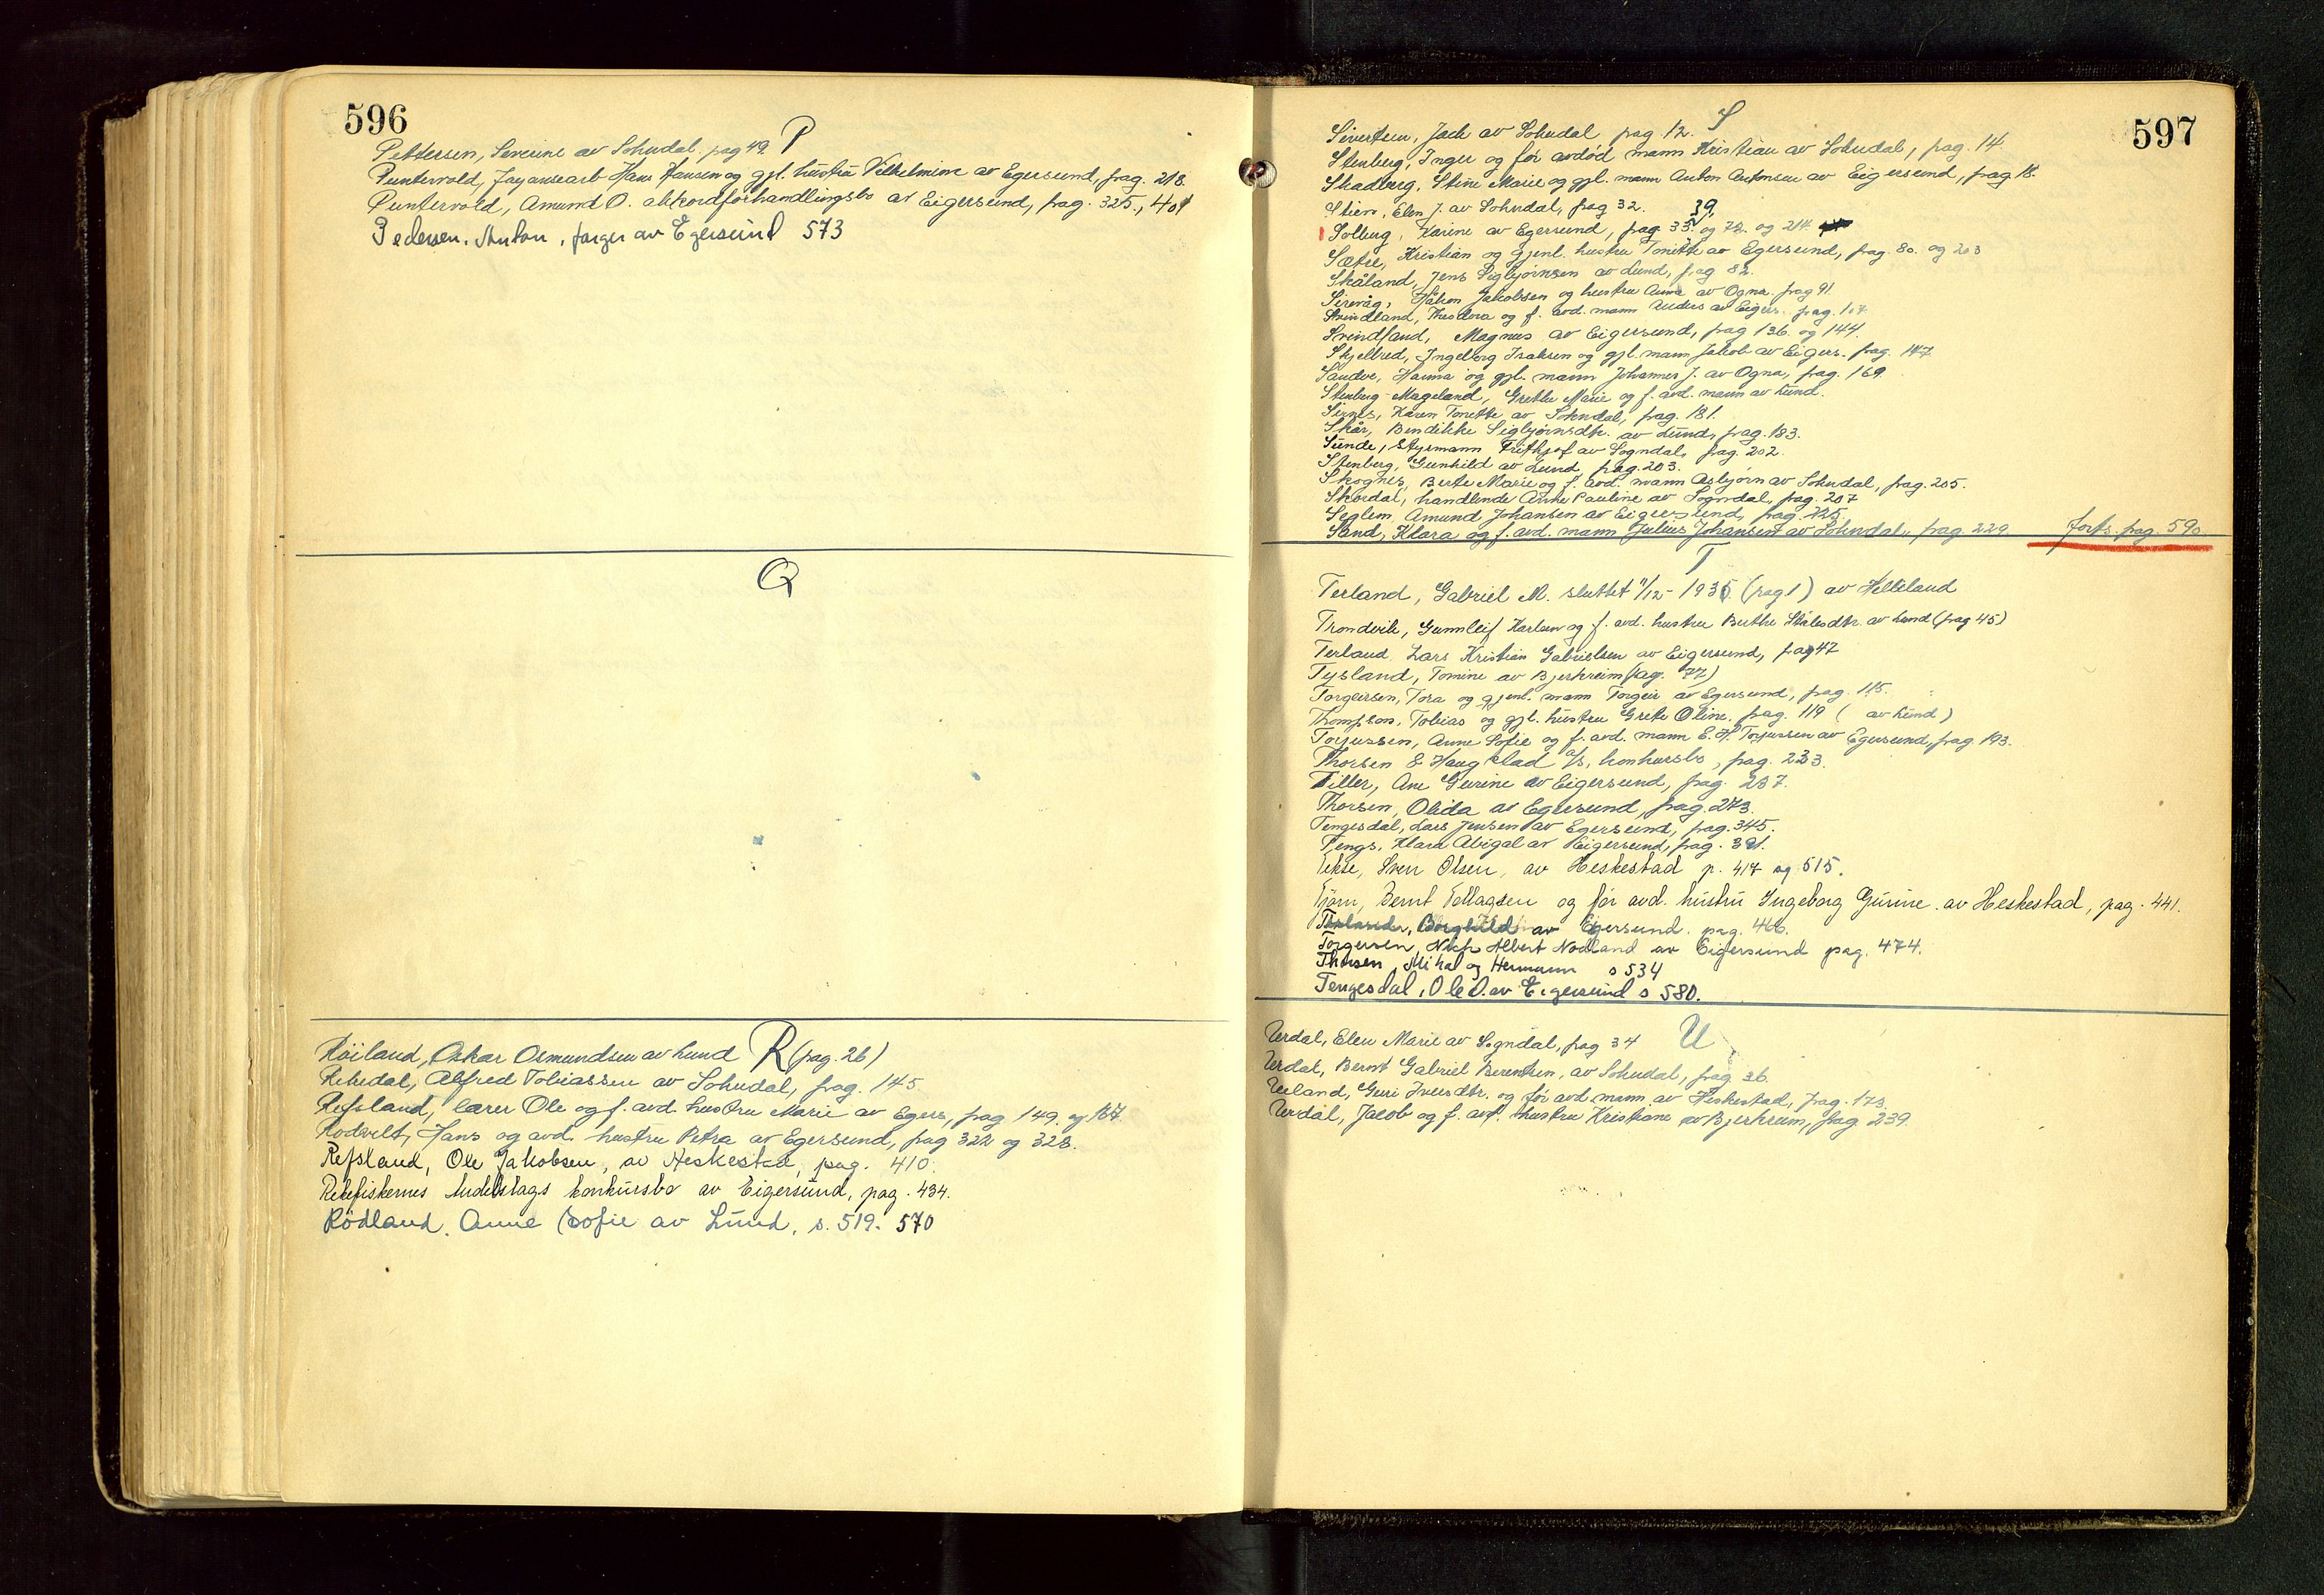 596
P
Pettersen, Severine av Sokndal pag 49
Puntervold, Fayansearb. Hans Hansen og gjl. hustru Vilhelmine av Egersund, pag. 218.
Puntervold, Amund O. akkordforhandlingsbo av Eigersund, pag. 325, 401
Pedersen, Anton, farger av Egersund 573
Q
R
Röiland, Oskar Osmundsen av Lund (pag. 26)
Rekedal, Alfred Tobiassen av Sokndal, pag. 145.
Refsland, lærer Ole og f. avd. hustru Marie av Egers., pag 149. og 167.
Rodvelt, Hans og avd. hustru Petra av Egersund, pag 322 og 328.
Refsland, Ole Jakobsen, av Heskestad, pag. 410.
Rekefiskernes Andelslags konkursbo av Eigersund, pag. 434.
Rödland, Anne Sofie av Lund, s. 519. 570
597
S
Sivertsen, Jack av Sokndal pag 12.
Stenberg, Inger og før avdød mann Kristian av Sokndal, pag. 14
Skadberg, Stine Marie og gjl. mann Anton Antonsen av Eigersund, pag 18.
Stien, Elen J. av Sokndal, pag 32. 39.
Solberg, Karine av Egersund, pag. 35 og 72. og 214
Sætre, Kristian og gjenl. hustru Tonette av Egersund, pag. 80. og 203
Skåland, Jens Sigbjørnsen av Lund, pag 82.
Sirevåg, Håkon Jakobsen og hustru Anna av Ogna. pag 91.
Svindland, Theodora og f. avd. mann Anders av Eigers. pag. 107
Svindland, Magnus av Eigersund, pag 136. og 144.
Skjelbred, Ingeborg Isaksen og gjl. mann Jakob av Eigers. pag. 147
Sandve, Hanna og gjl. mann Johannes J. av Ogna, pag. 169.
Stenberg Mageland, Grethe Marie og f. avd. mann av Lund.
Sirnes, Karen Tonette av Sokndal, pag. 181.
Skår, Bendikke Sigbjørnsdtr. av Lund, pag. 183.
Sunde, Styrmann Frithjof av Sogndal, pag. 202.
Stenberg, Gunhild av Lund, pag. 203.
Skognes, Berte Marie og f. avd. mann Asbjørn av Sokndal, pag. 205.
Skordal, handlende Anne Pauline av Sogndal, pag. 207
Seglem, Amund Johansen av Eigersund, pag. 225.
Sand, Klara og f. avd. mann Julius Johansen av Sokndal, pag. 229. forts. pag. 590.
T
Terland, Gabriel M. sluttet 11/12 - 1935 (pag 1) av Helleland
Trondvik, Gunnleif Karlsen og f. avd. hustru Berthe Ståledtr. av Lund (pag 45)
Terland, Lars Kristian Gabrielsen av Eigersund, pag 47
Tysland, Tomine av Bjerkreim (pag. 77)
Torgersen, Tora og gjenl. mann Torgeir av Egersund, pag. 115.
Thompson, Tobias og gjl. hustru Grete Oline, pag. 119 ( av Lund )
Torjussen, Anne Sofie og f. avd. mann E. H. Torjussen av Egersund, pag. 193.
Thorsen & Haugstad a/s, konkursbo, pag. 233.
Tiller, Ane Gurine av Eigersund, pag. 237.
Thorsen, Olida av Egersund, pag. 273.
Tengesdal, Lars Jensen av Egersund, pag. 345.
Tengs, Klara Abigal av Eigersund, pag. 391.
Tekse, Sven Olsen, av Heskestad p. 417 og 515.
Tjörn, Bernt Tollagsen og før avd. hustru Ingeborg Gurine av Heskestad, pag. 441.
Terland, Borghild av Egersund. pag. 466.
Torgersen, Nich Albert Nodland av Eigersund pag. 474.
Thorsen, Mikal og Hermann s 534
Tengesdal, Ole D. av Eigersund s 580.
U
Urdal, Elen Marie av Sogndal, pag 34
Urdal, Bernt Gabriel Berentsen, av Sokndal, pag 36.
Ueland, Guri Iversdtr. og før avd. mann av Heskestad, pag. 173.
Urdal, Jacob og f. avd. hustru Kristiane av Bjerkreim, pag. 239.